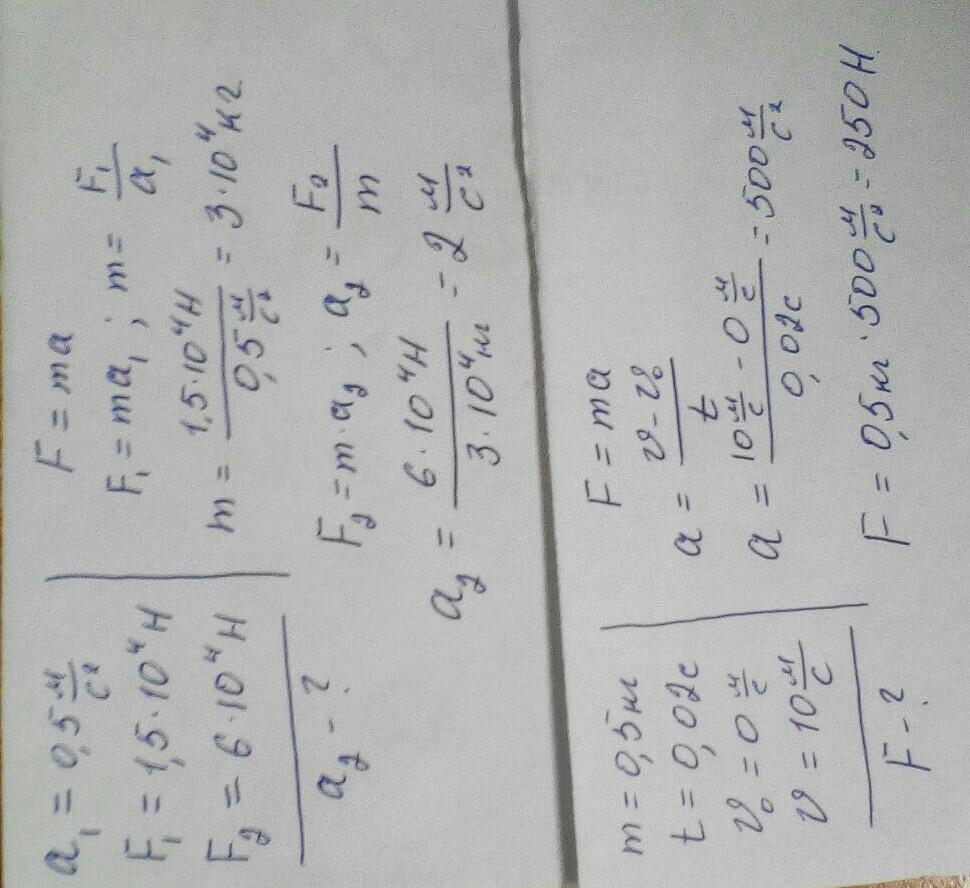 a₁ = 0,5 м/с²
F₁ = 1,5·10⁴ Н
F₂ = 6·10⁴ Н
a₂ - ?
F = ma
F₁ = ma₁ ; m = F₁/a₁
m = 1,5·10⁴Н / 0,5 м/с² = 3·10⁴ кг
F₂ = m·a₂ ; a₂ = F₂/m
a₂ = 6·10⁴Н / 3·10⁴кг = 2 м/с²
m = 0,5кг
t = 0,02с
υ₀ = 0 м/с
υ = 10 м/с
F - ?
F = ma
a = υ - υ₀ / t
a = 10 м/с - 0 м/с / 0,02с = 500 м/с²
F = 0,5кг · 500 м/с² = 250Н